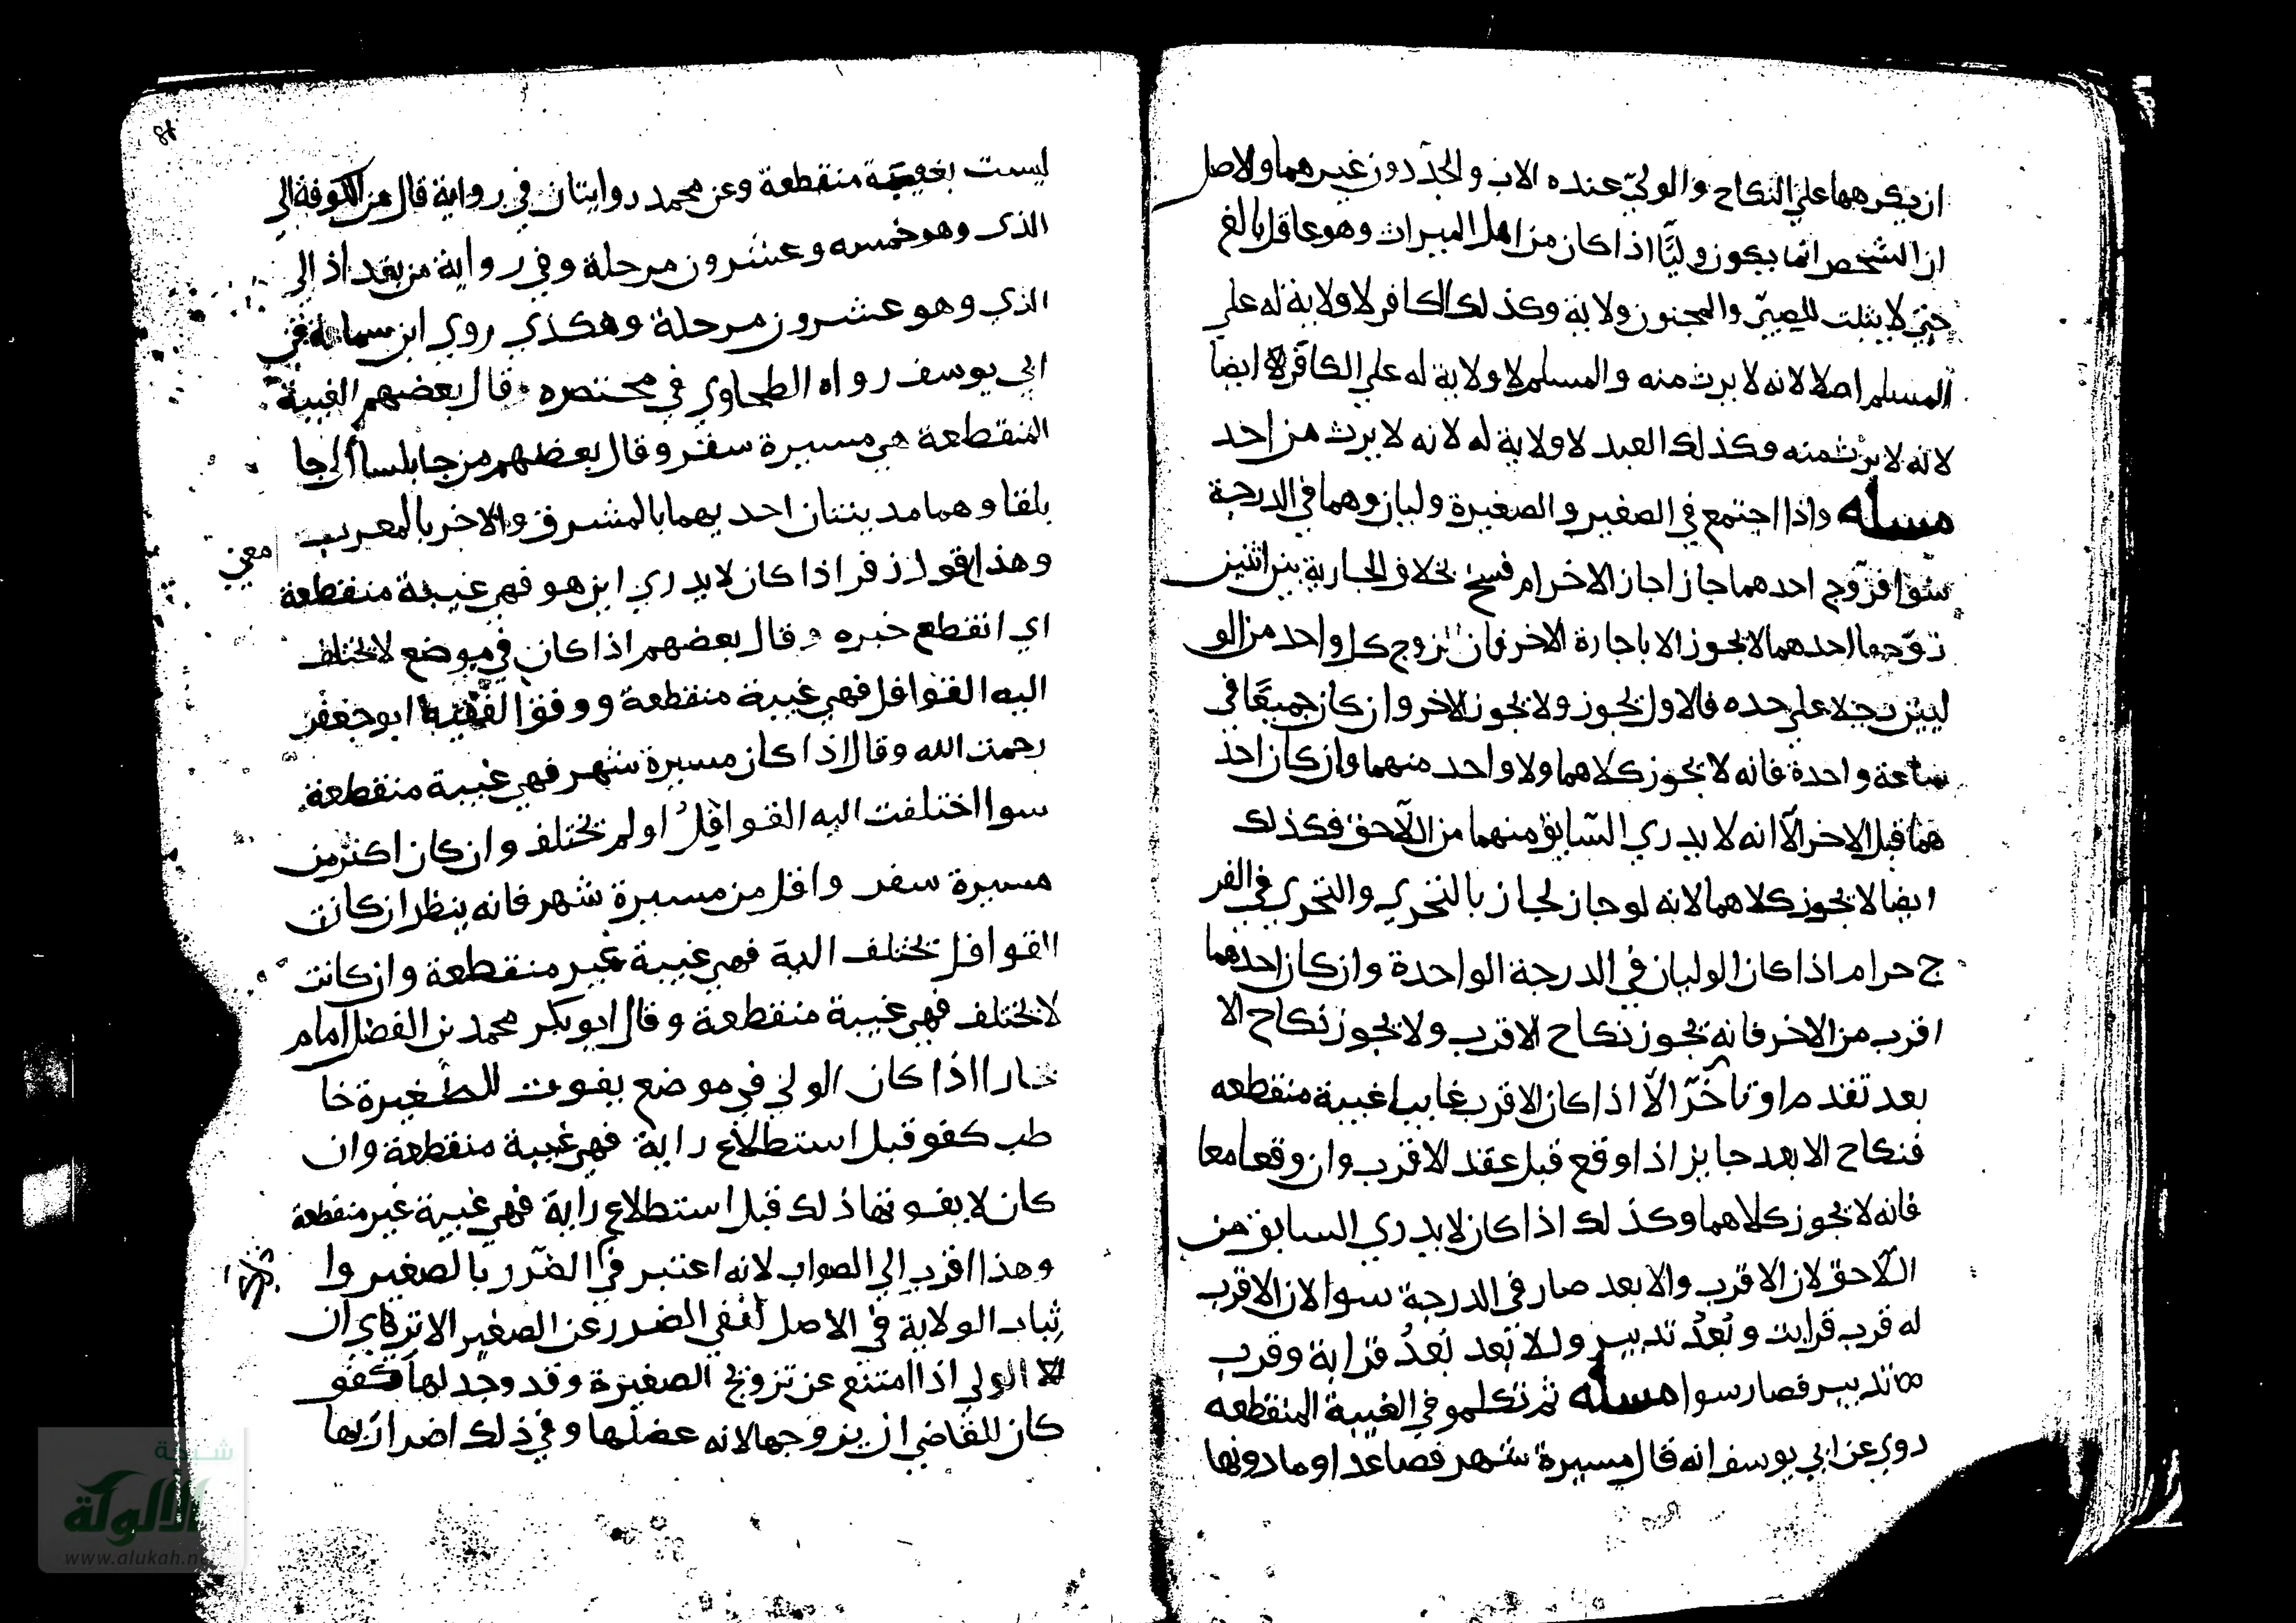 ان يكرهها علي النكاح والوليّ عنده الاب والجدّ دون غيرهما والاصل
ان الشخص انما يكون وليًّا اذا كان من اهل الميراث وهو عاقل بالغ
حتيّ لا يثبت للصبيّ والمجنون ولاية وكذلك الكافر لا ولاية له علي
المسلم اصلا لانه لا يرث منه والمسلم لا ولاية له علي الكافر ايضا
لانه لا يرث منه وكذلك العبد لا ولاية له لانه لا يرث من احد
مسله واذا اجتمع في الصغير والصغيرة وليان وهما في الدرجة
سوا فزوّج احدهما جاز اجاز الاخر ام فسخ بخلاف الجارية بين اثنين
زوّجها احدهما لا يجوز الا باجازة الاخر فان زوج كل واحد من الو
ليين رجلا علي حده فالاول يجوز ولا يجوز الاخر وان كان جميعًا في
ساعة واحدة فانه لا يجوز كلاهما ولا واحد منهما وان كان احد
هما قبل الاخر الّا انه لا يدري السّابق منهما من اللّاحق فكذلك
ايضا لا يجوز كلاهما لانه لو جاز لجاز بالتحري والتحري في الفر
ج حرام اذا كان الوليان في الدرجة الواحدة وان كان احدهما
اقرب من الاخر فانه يجوز نكاح الاقرب ولا يجوز نكاح الا
بعد تقدم او تاخّر الّا اذا كان الاقرب غايبا غيبة منقطعه
فنكاح الابعد جايز اذا وقع قبل عقد الاقرب وان وقعا معا
فانه لا يجوز كلاهما وكذلك اذا كان لا يدري السابق من
اللّاحق لان الاقرب والابعد صار في الدرجة سوا لان الاقرب
له قرب قرابت وبُعدُ تدبير وللابعد بُعدُ قرابة وقرب
تدبير فصار سوا مسله ثم تكلمو في الغيبة المنقطعه
روي عن ابي يوسف انه قال مسيرة شهر فصاعدا وما دونها
ليست بغيبة منقطعة وعن محمد روايتان في رواية قال من الكوفة الي
الذى وهو خمسه وعشرون مرحلة وفي رواية من بغداذ الي
الذي وهو عشرون مرحلة وهكذي روي ابن سماعة عن
ابي يوسف رواه الطحاوي في مختصره وقال بعضهم الغيبة
المنقطعة هي مسيرة سفر وقال بعضهم من جابلسا الي جا
بلقا وهما مدينتان احديهما بالمشرق والاخر بالمغرب
وهذا قول زفر اذا كان لا يدري اين هو فهي غيبة منقطعة
معني
اي انقطع خبره وقال بعضهم اذا كان في موضع لا يختلف
اليه القوافل فهي غيبة منقطعة ووفق الفقيه ابو جعفر
رحمت الله وقال اذا كان مسيرة شهر فهي غيبة منقطعة
سوا اختلفت اليه القوافِلُ او لم يختلف وان كان اكثر من
مسيرة سفر واقل من مسيرة شهر فانه ينظر ان كانت
القوافل يختلف الية فهي غيبة غير منقطعة وان كانت
لا يختلف فهي غيبة منقطعة وقال ابو بكر محمد بن الفضل امام
بخارا اذا كان الولي في موضع يفوت للصغيرة خا
طب كفو قبل استطلاع راية فهي غيبة منقطعة وان
كان لا يفوتها ذلك قبل استطلاع راية فهي غيبة غير منقطعة
وهذا اقرب الي الصواب لانه اعتبر في الضّرر بالصغير وا
ثبات الولاية في الاصل لنفي الضرر عن الصغير الا تري ان
الولي اذا امتنع عن تزويج الصغيرة وقد وجد لها كفو
كان للقاضي ان يزوجها لانه عضلها وفي ذلك اضرار بها
شبكة
الألوكة
www.alukah.n